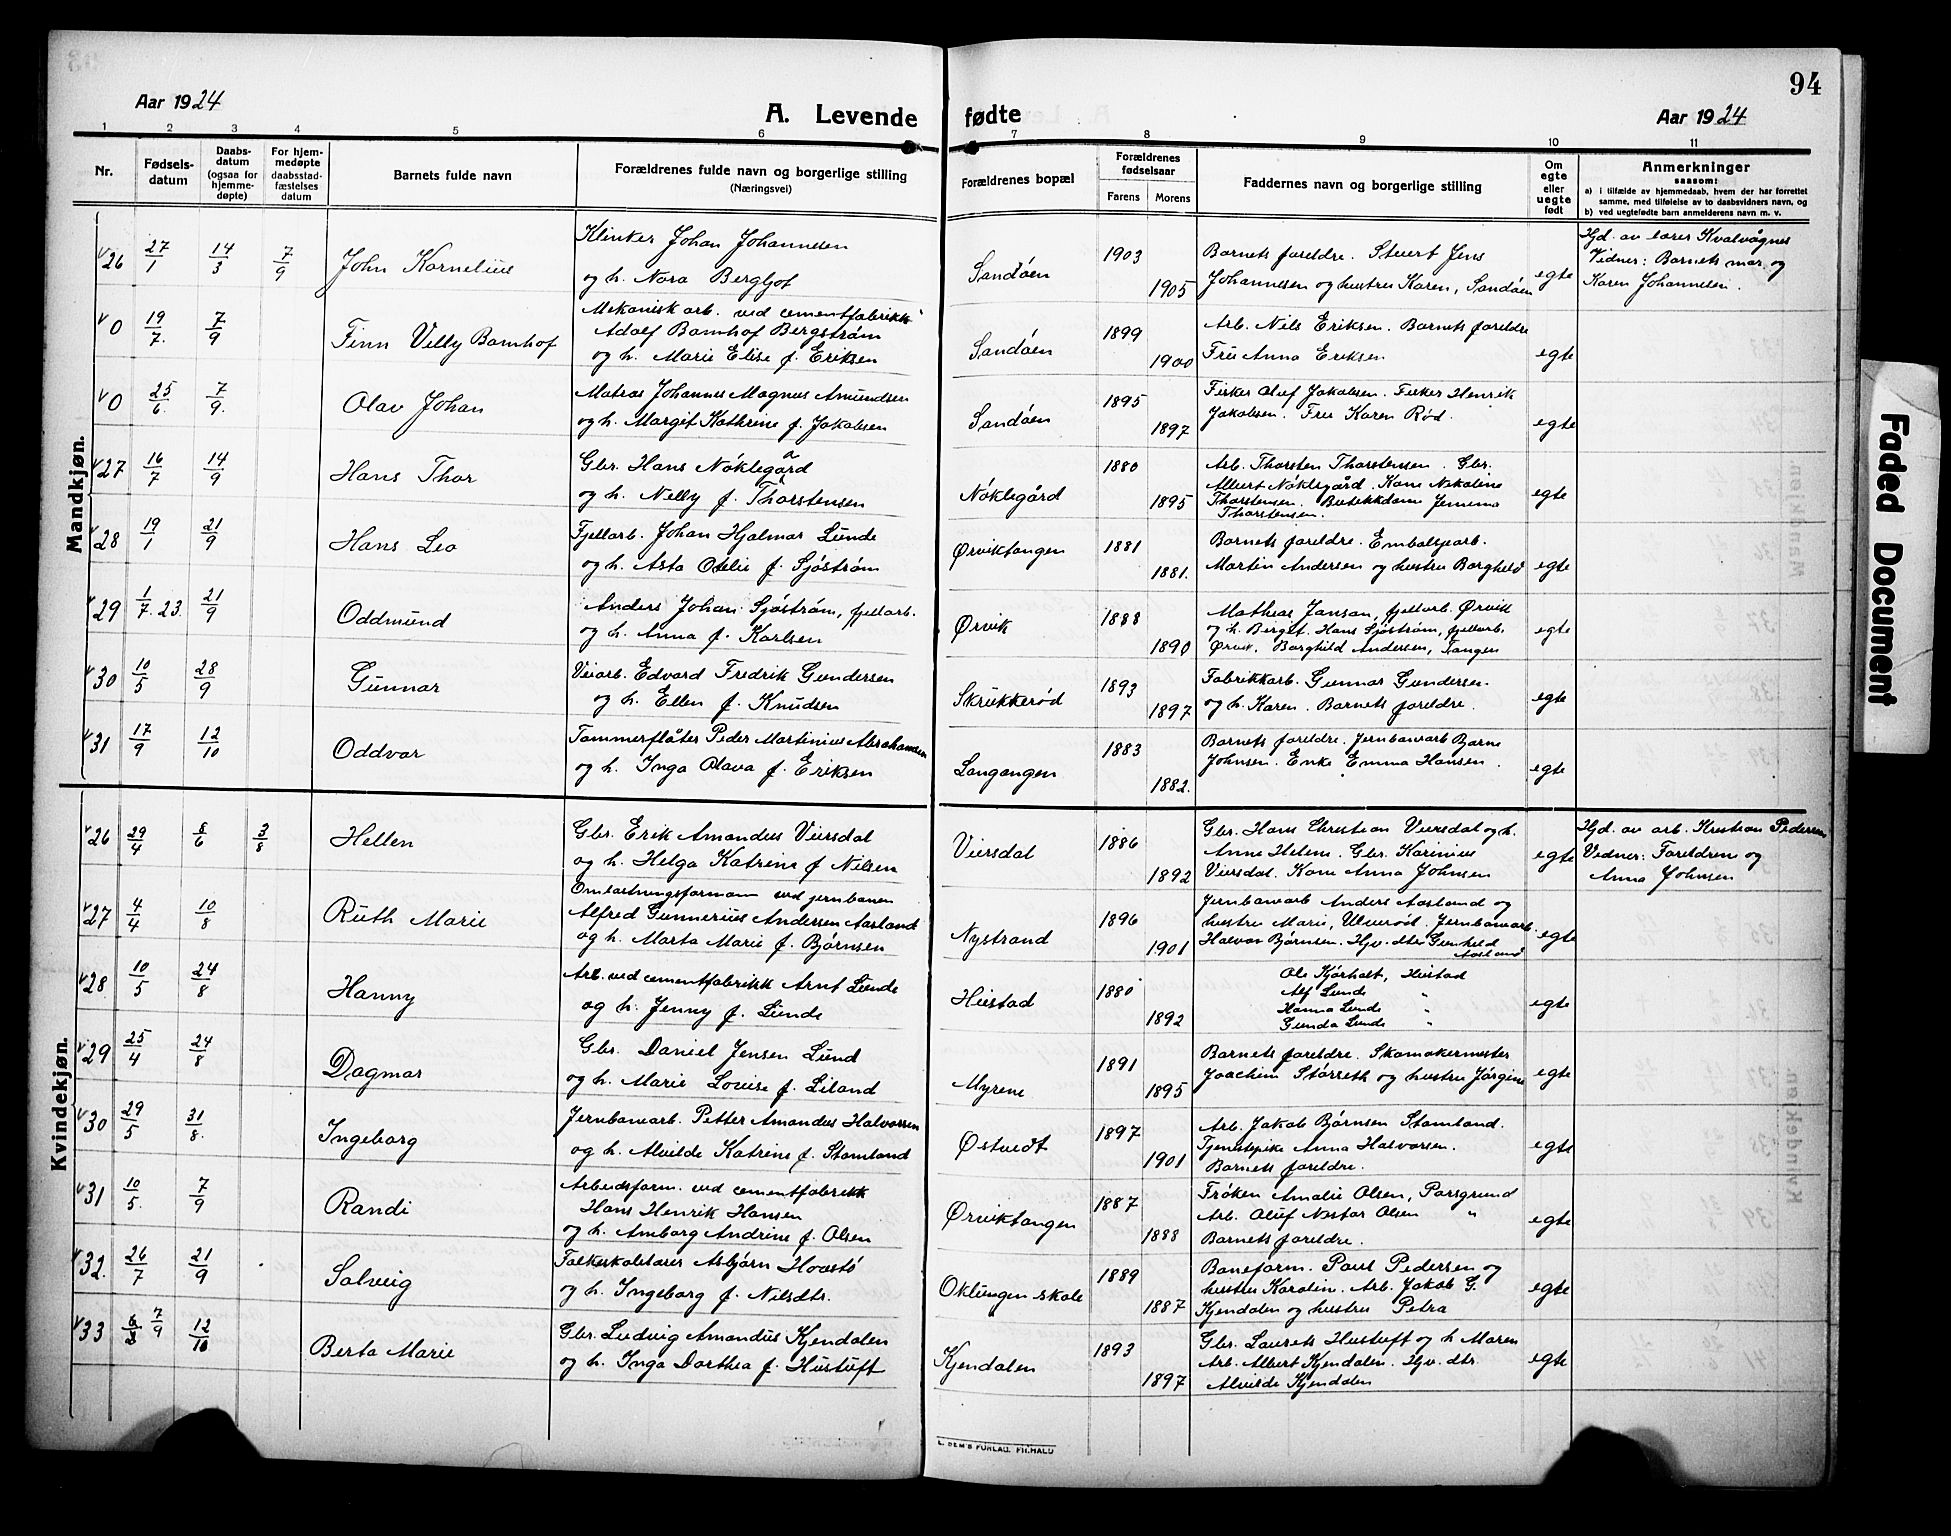 94
Aar 1924
A. Levende fødte
Aar 1924
1 2 3 4 5 6 7 8 9 10 11
Nr.
Fødsels-
datum
Daabs-
datum
(ogsaa for
hjemme-
døpte)
For hjem-
medøpte
daabsstad-
fæstelses
datum
Barnets fulde navn
Forældrenes fulde navn og borgerlige stilling
(Næringsvei)
Forældrenes bopæl
Forældrenes
fødselsaar
Farens Morens
Faddernes navn og borgerlige stilling
Om
egte
eller
uegte
født
Anmerkninger
saasom:
a) i tilfælde av hjemmedaab, hvem der har forrettet
samme, med tilføielse av to daabsvidners navn, og
b) ved uegtefødte barn anmelderens navn m. v.
Mandkjøn.
v 26 27/1 14/3 7/9 John Kornelius
Klinker Johan Johannesen
og h. Nora Bergljot
Sandøen 1903 1905
Barnets foreldre. Stuert Jens
Johannesen og hustru Karen, Sandøen
egte
Hjd. av lærer Kvalvågnes
Vidner: Barnets mor og
Karen Johannesen.
v 0 19/7. 7/9 Finn Villy Bamhof
Mekanisk arb. ved cementfabrikk
Adolf Bamhof Bergstrøm
og h. Marie Elise f. Eriksen
Sandøen 1899 1900
Arb. Nils Eriksen. Barnets foreldre
Fru Anna Eriksen
egte
v 0 25/6. 7/9. Olav Johan
Matros Johannes Magnus Amundsen
og h. Margit Kathrine f. Jakobsen
Sandøen 1895 1897
Fisker Oluf Jakobsen. Fisker Henrik
Jakobsen. Fru Karen Rød.
egte
v 27 16/7 14/9 Hans Thor
Gbr. Hans Nøklegård
og h. Nelly f. Thorstensen
Nøklegård 1880 1895
Arb. Thorsten Thorstensen. Gbr.
Albert Nøklegård. Kone Nikoline
Thorstensen. Butikkdame Jemima
Thorstensen.
egte
v 28 19/1 21/9 Hans Leo
Fjellarb. Johan Hjalmar Lunde
og h. Asta Otilie f. Sjøstrøm
Ørviktangen 1881 1881.
Barnets foreldre. Embalsjearb.
Martin Andersen og hustru Borghild
egte
v 29 1/7. 23. 21/9 Oddmund
Anders Johan Sjøstrøm, fjellarb.
og h. Anna f. Karlsen
Ørvik 1888 1890
Mathias Janson, fjellarb. Ørvik
og h. Berget. Hans Sjøstrøm, fjellarb.
Ørvik. Borghild Andersen, Tangen
egte
v 30 10/5 28/9 Gunnar
Veiarb. Edvard Fredrik Gundersen
og h. Ellen f. Knudsen
Skrukkerød 1893 1897
Fabrikkarb. Gunnar Gundersen
og h. Karen. Barnets foreldre.
egte
v 31 17/9 12/10 Oddvar
Tømmerfløter Peder Martinius Abrahamsen
og h. Inga Olava f. Eriksen
Langangen 1883 1882.
Barnets foreldre. Jernbanearb Bjarne
Johnsen. Enke Emma Hansen.
egte
Kvindekjøn.
v 26 29/4 8/6 3/8 Hellen
Gbr. Erik Amandus Viersdal
og h. Helga Katrine f Nilsen
Viersdal 1886 1892
Gbr. Hans Christian Viersdal og h.
Anne Helene. Gbr. Karinius
Viersdal. Kone Anna Johnsen
egte
Hjd. av arb. Kristian Pedersen
Vidner: Foreldrene og
Anna Johnsen
v 27 4/4 10/8 Ruth Marie
Omlastningsformann ved jernbanen
Alfred Gunnerius Andersen Aasland
og h. Marta Marie f. Bjørnsen
Nystrand 1896 1901
Jernbanearb Anders Aasland og
hustru Marie, Ulverød. Jernbanearb.
Halvor Bjørnsen. Hjv. dtr Gunhild
Aasland
egte
v 28 10/5 24/8 Hanny
Arb. ved cementfabrikk Arnt Lunde
og h. Jenny f. Lunde
Hustad 1880 1892
Ole Kjørholt, Hustad
Alf Lunde "
Hanna Lunde "
Gunda Lunde "
egte
v 29 25/4 24/8 Dagmar
Gbr. Daniel Jensen Lund
og h. Marie Lovise f. Liland
Myrene 1891 1895
Barnets foreldre. Skomakermester
Joachim Størseth og hustru Jørgine
egte
v 30 29/5 31/8. Ingeborg
Jernbanearb. Petter Amandus Halvorsen
og h. Alvilde Katrine f. Stamland
Østvedt 1897 1901
Arb. Jakob Bjørnsen Stamland.
Tjenestepike Anna Halvorsen.
Barnets foreldre.
egte
v 31 10/5. 7/9 Randi
Arbeidsform. ved cementfabrikk
Hans Henrik Hansen
og h. Amborg Andrine f. Olsen
Ørviktangen 1887 1888
Frøken Amalie Olsen, Porsgrund
Arb. Oluf Nestor Olsen "
Barnets foreldre.
egte
v 32. 26/7 21/9 Solveig
Folkeskolelærer Asbjørn Hovstø
og h. Ingeborg f. Nilsdtr.
Oklungen skole 1889 1887
Baneform. Paul Pedersen og
hustru Karolin. Arb. Jakob G.
Kjendalen og hustru Petra
egte
v 33 6/8 7/9 12/10 Berta Marie
Gbr. Ludvig Amandus Kjendalen
og h. Inga Dorthea f. Hustuft
Kjendalen 1893 1897
Gbr. Laurits Hustuft og h Maren
Arb. Albert Kjendalen. Hjv. dtr.
Alvilde Kjendalen
egte
FR.HALD
Faded Document